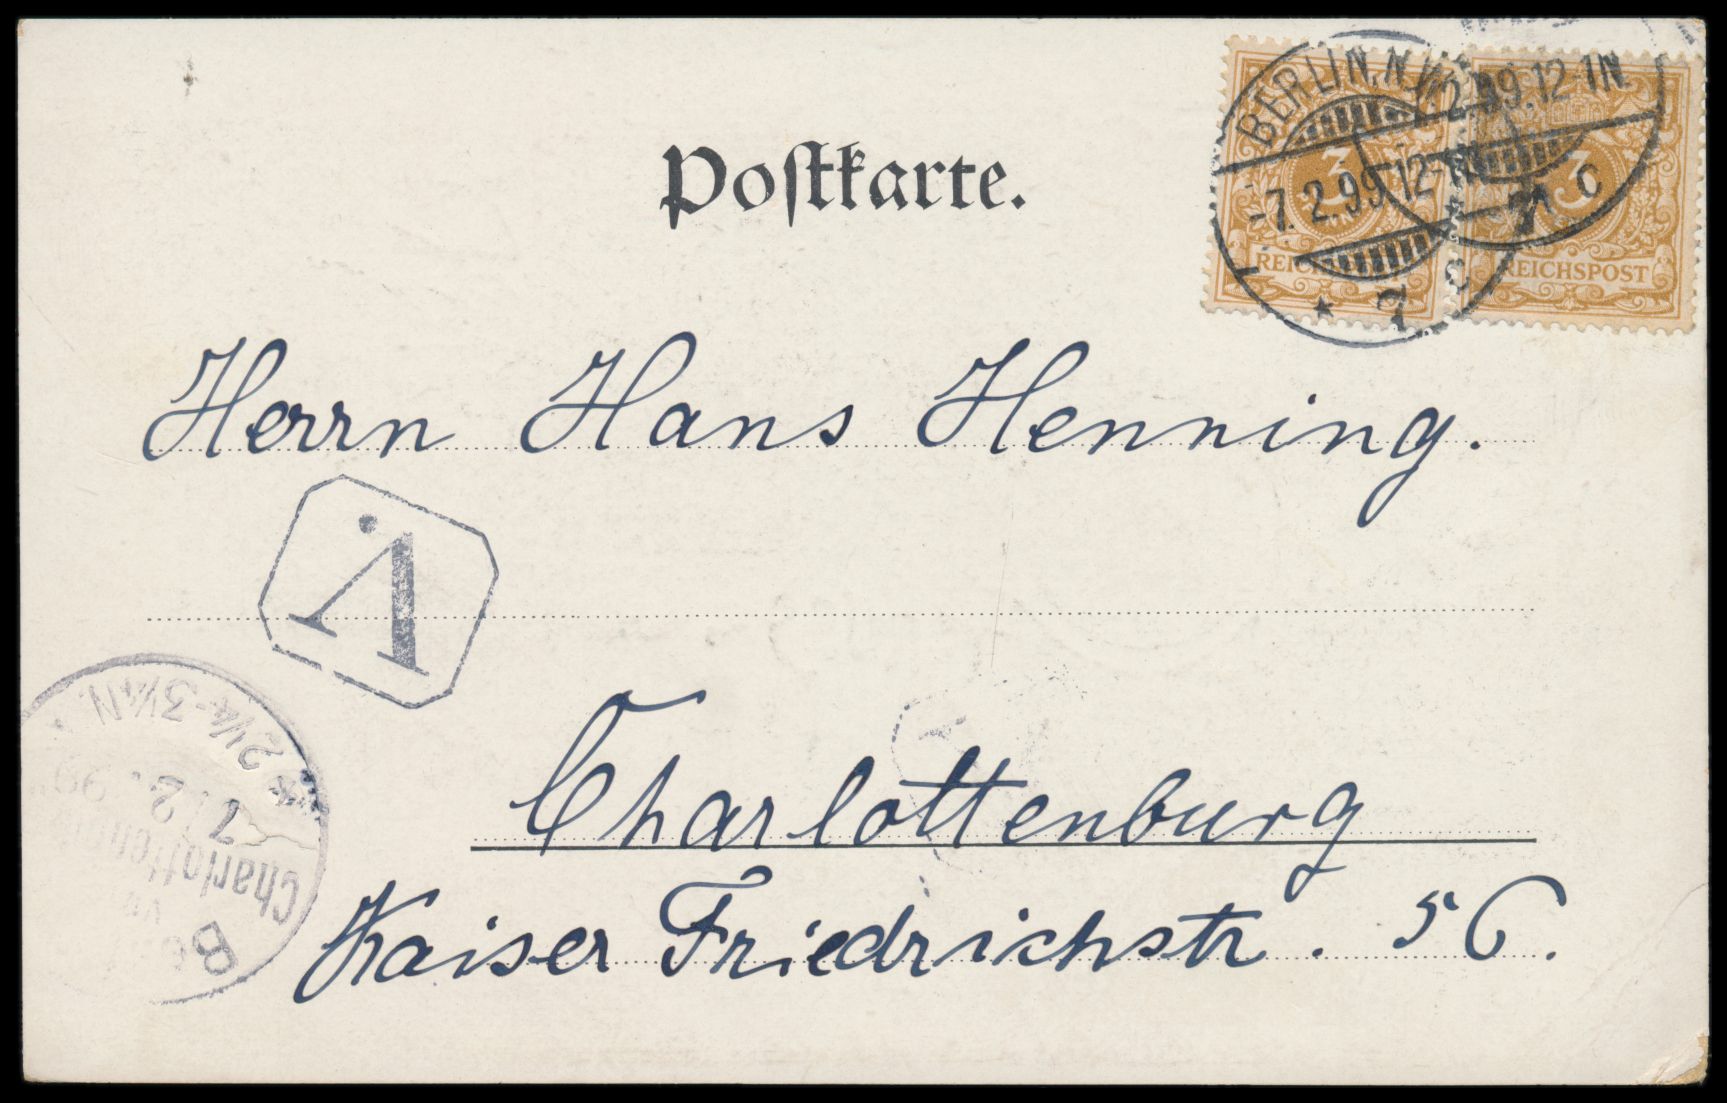 Postkarte.
BERLIN, N.W.
-7. 2. 99. 12-1N.
* 7 c
2.99.12-1N.
c
3
REICHSPOST
3
REICHSPOST
Herrn Hans Henning.
V.
Charlottenburg
Kaiser Friedrichstr. 56.
2¼-3¼N.
7.2.99
Charlotten